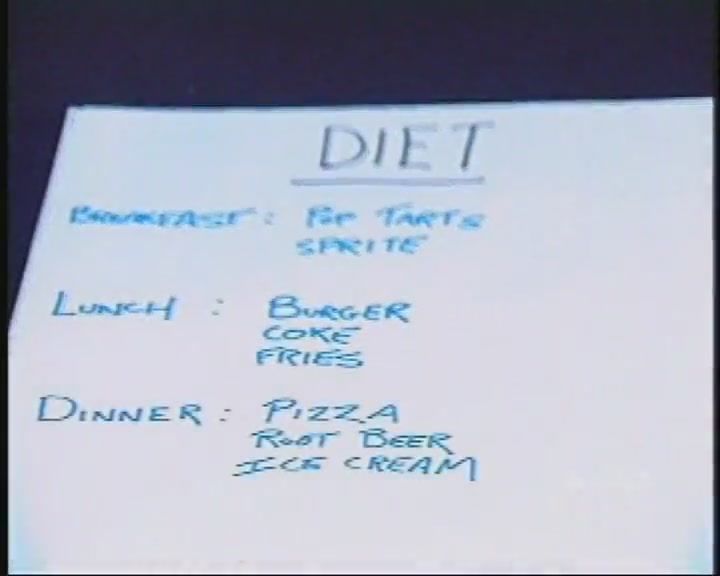 DIET
BREAKFAST: POP TARTS
SPRITE
LUNCH : BURGER
COKE
FRIES
DINNER : PIZZA
ROOT BEER
ICE CREAM